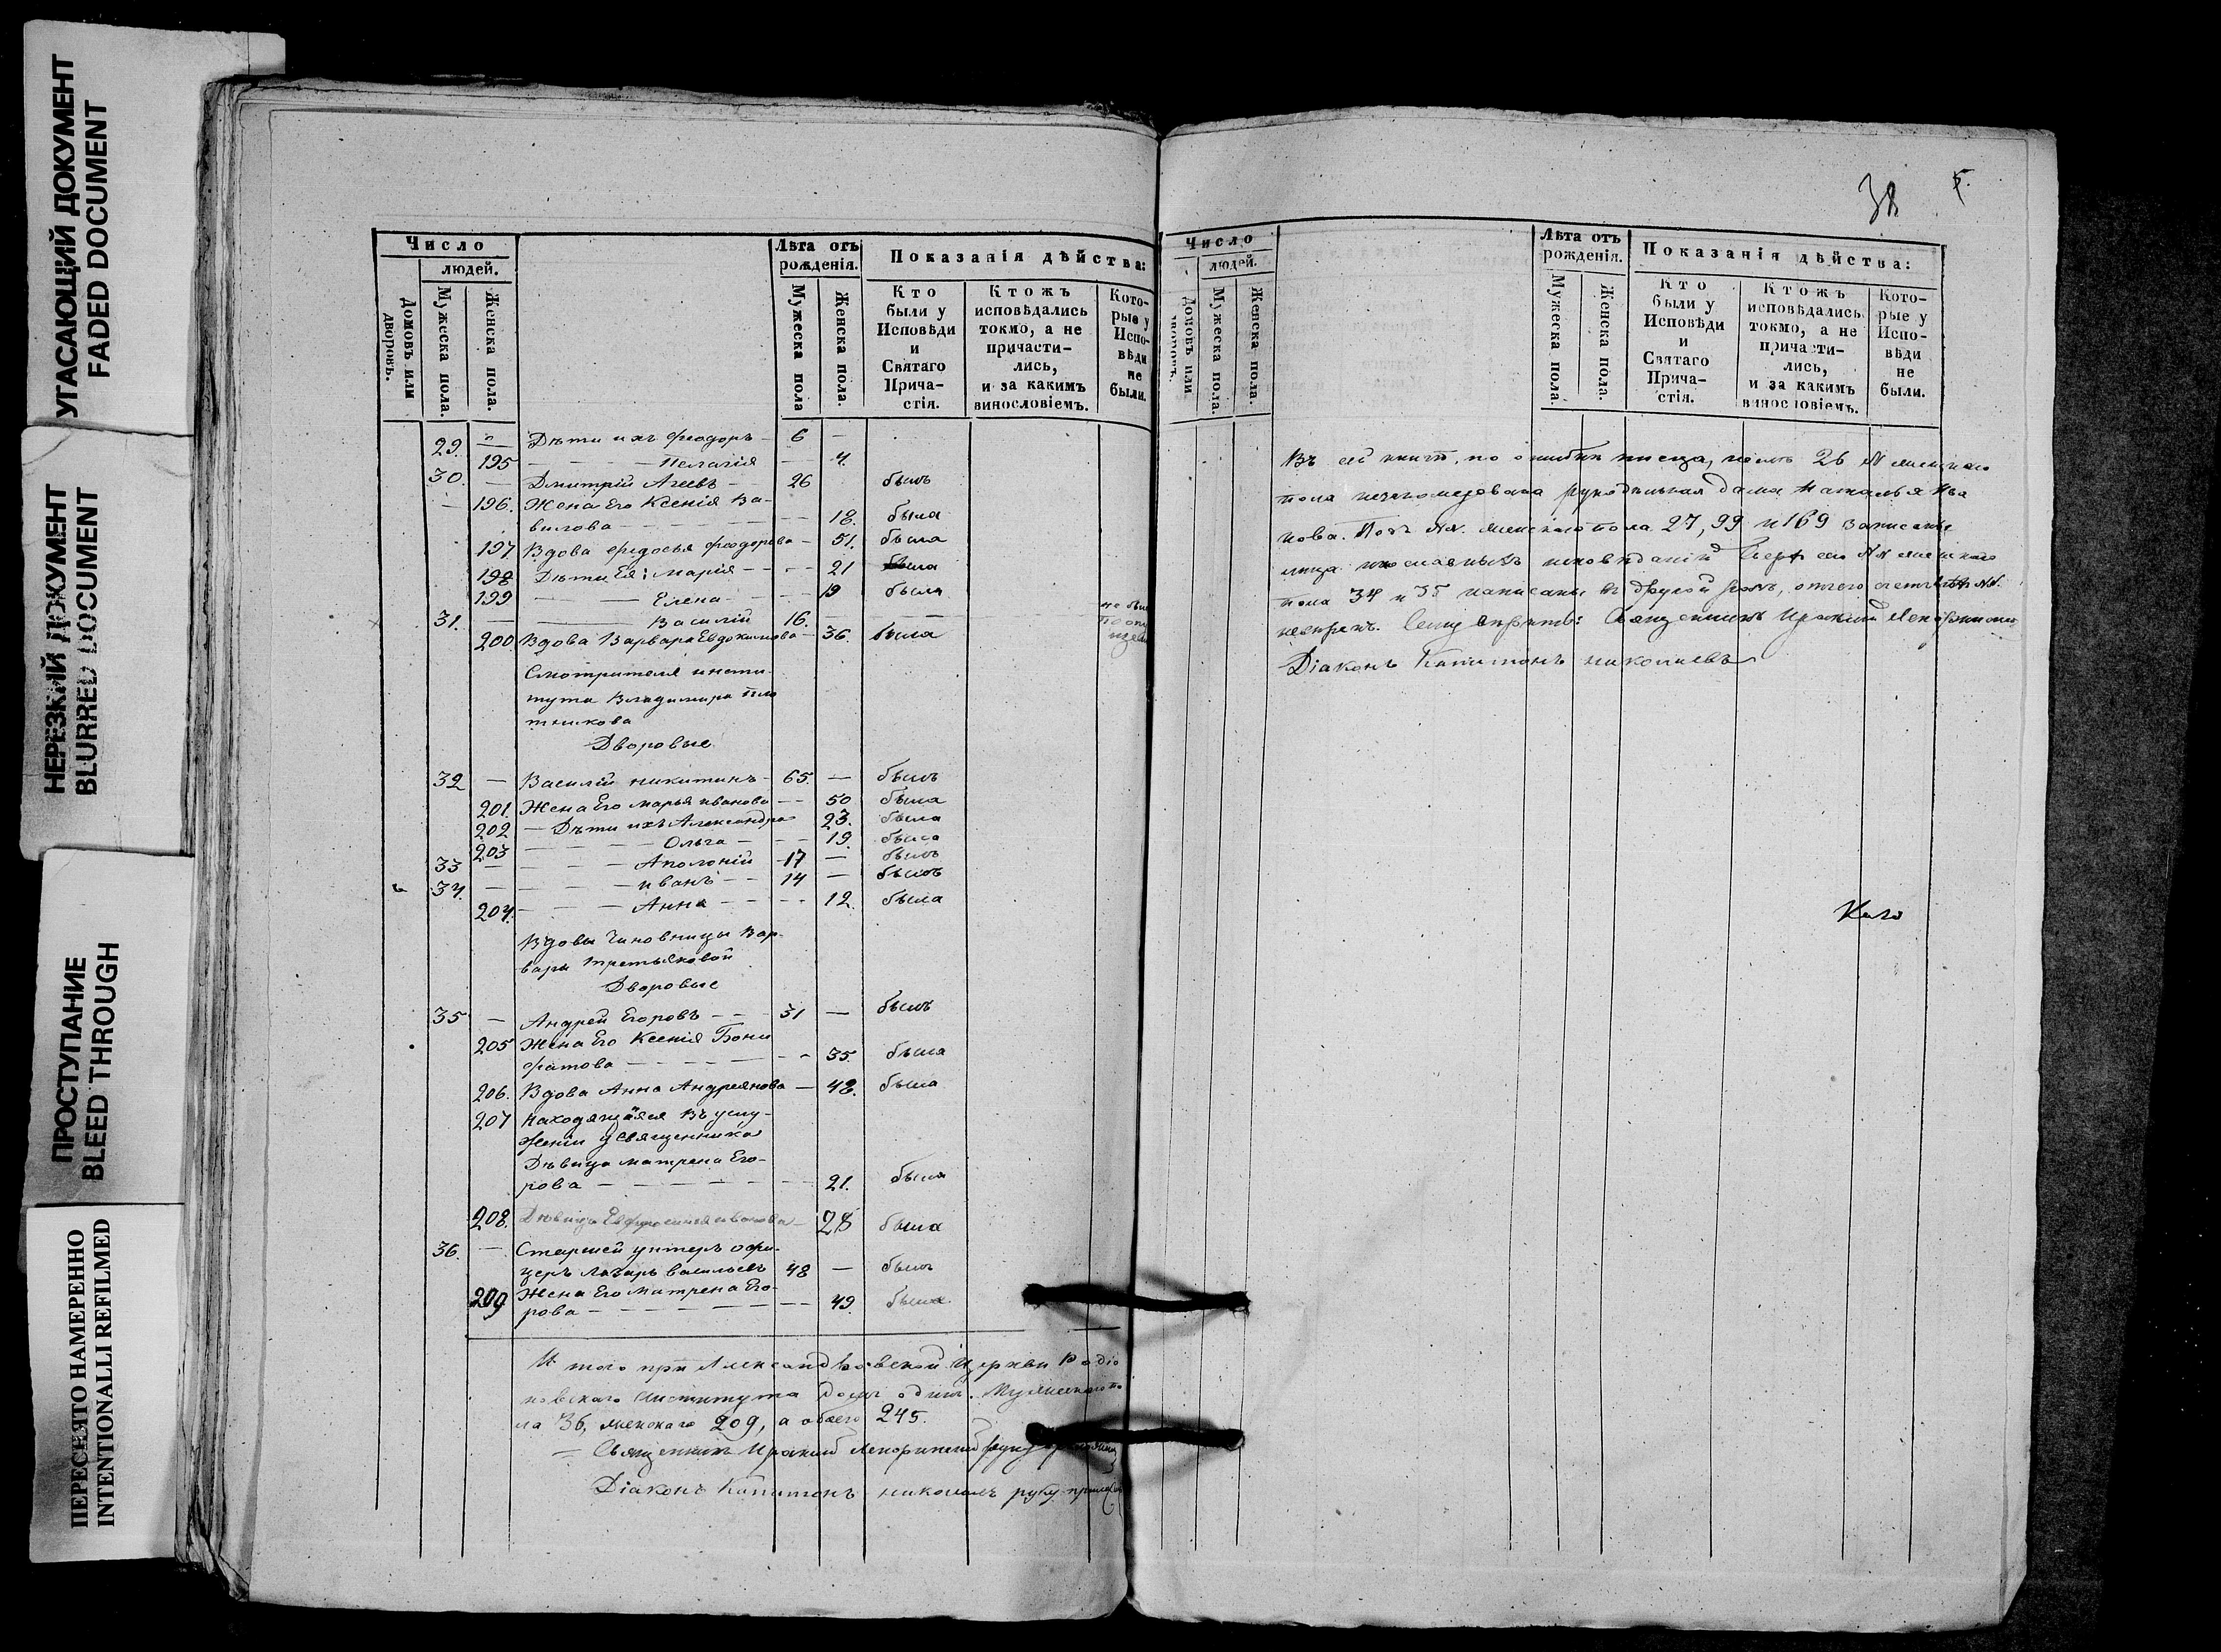 УГАСАЮЩИЙ ДОКУМЕНТ
FADED DOCUMENT
НЕРЕЗКИЙ ДОКУМЕНТ
BLURRED DOCUMENT
ПРОСТУПАНИЕ
BLEED THROUGH
ПЕРЕСНЯТО НАМЕРЕННО
INTENTIONALLI REFILMED
Число
людей.
Домовъ или дворовъ.
Мужеска пола.
Женска пола.
Лѣта отъ рожденія.
Мужеска пола
Женска пола.
Показанія дѣйства:
Кто были у Исповѣди и Святаго Прича-стія.
Ктожъ исповѣдались токмо, а не причасти-лись, и за какимъ винословіемъ.
Кото-рые у Испо-вѣди не были.
29. — Дѣти ихъ Феодоръ — 6 —
195 — — — Пелагія — 4.
30. — Дмитрій Агеевъ — 26 былъ
— 196. Жена Его Ксенія Ва-
вилова — — — — 18. была
197. Вдова Федосья Феодорова — 51. была
198 Дѣти Ея: Марія — — — 21 была
199 — — Елена — — 19 была
31. — — — Василій 16. —
200 Вдова Варвара Евдокимова — 36. была
Смотрителя инсти-
тута Владимира Пло
тникова
Дворовые
32 — Василій Никитинъ — 65. — былъ
201. Жена Его Марья Иванова — — 50 была
202 — Дѣти ихъ Александра 23. была
203 — — — Ольга — — 19. была
33 — — — — Аполоній 17 — былъ
34. — — — — Иванъ — — 14 — былъ
204. — — — Анна — — — 12. была
Вдовы Чиновницы Вар-
вары Третьяковой
Дворовые
35 — Андрей Егоровъ — — 31 — былъ
205 Жена Его Ксенія Бони
фатова — — — — 35. была
206. Вдова Анна Андреянова — 48. была
207 Находящаяся въ услу-
женіи у Священника
Дѣвица Матрена Его-
рова — — — — — 21. была
208. Дѣвица Евфросинія Иванова — 28 была
36. — Старшей унтеръ офи-
церъ Лазарь Васильевъ 48 — былъ
209 Жена Его Матрена Его-
рова — — — — — 49. была
И того при Александровской Церкви Родіо
новскаго Института домъ одинъ. Мужескаго по
ла 36, женскаго 209, а обоего 245.
— Священникъ Ираклій руку приложилъ
Діаконъ Капитонъ Николаевъ руку приложилъ
38
Число
людей.
Домовъ или дворовъ.
Мужеска пола.
Женска пола.
Лѣта отъ рожденія.
Мужеска пола.
Женска пола.
Показанія дѣйства:
Кто были у Исповѣди и Святаго Прича-стія.
Ктожъ исповѣдались токмо, а не причасти-лись, и за какимъ винословіемъ.
Кото-рые у Испо-вѣди не были.
Въ сей книгѣ, по ошибкѣ писца, послѣ 26 № женскаго
пола рукодѣльная дама Наталья Ива
нова. Подъ №№ женскаго пола 27, 99 и 169 записаны
лица инославныхъ исповѣданій. №№ женскаго
пола 34 и 35 написаны въ другой разъ, отчего счетъ №№.
Священникъ Ираклій
Діаконъ Капитонъ Николаевъ